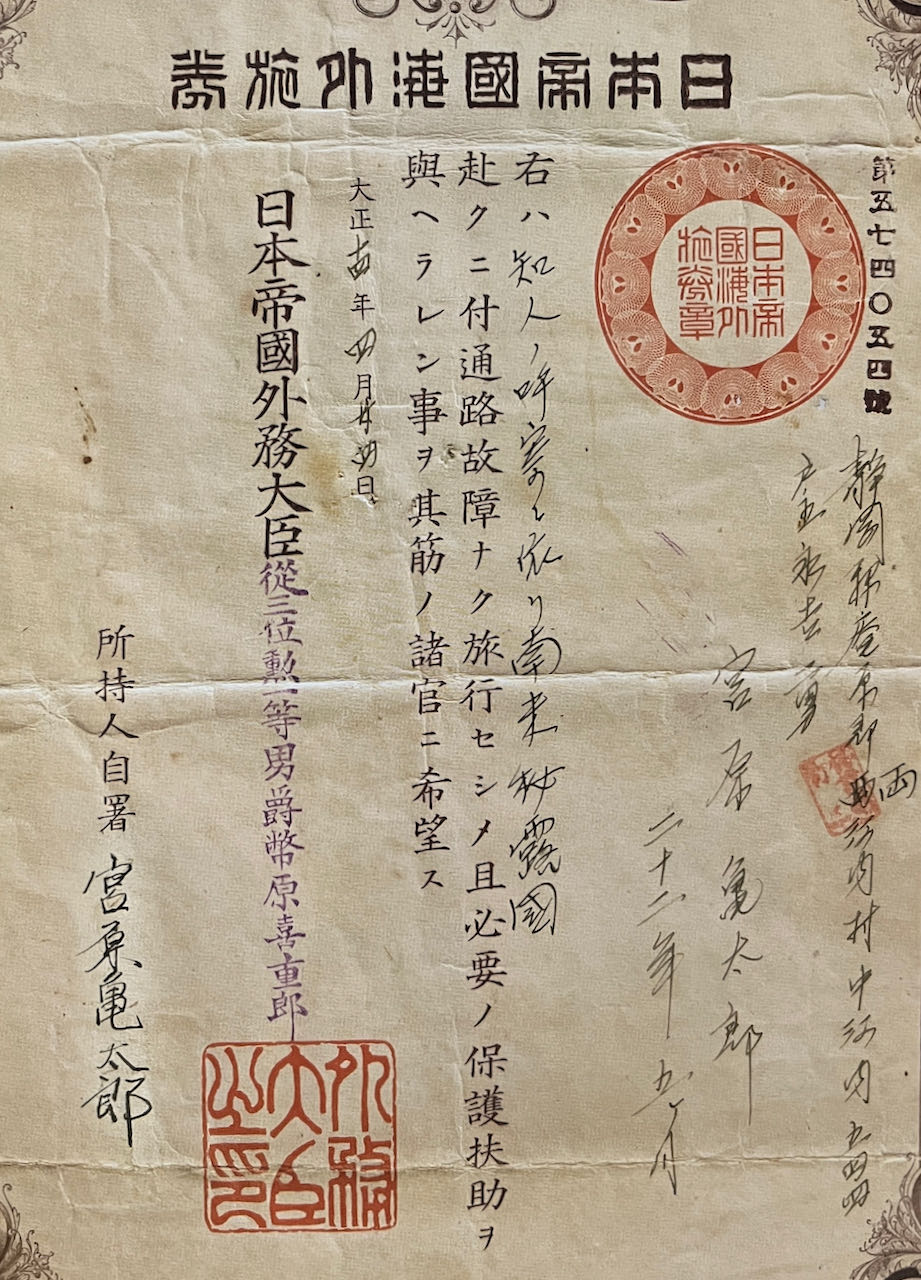 日本帝國海外旅券
第五七四〇五四號
日本帝
國海外
旅券章
靜岡縣庵原郡両河内村中河内五四四
戸主永吉
宮原亀太郎
二十二年五ヶ月
右ハ知人ノ呼寄ニ依リ南米秘露國
赴クニ付通路故障ナク旅行セシメ且必要ノ保護扶助ヲ
與ヘラレン事ヲ其筋ノ諸官ニ希望ス
大正 年四月廿四日
日本帝國外務大臣從三位勲一等男爵幣原喜重郎
外務
大臣
之印
所持人自署 宮原亀太郎